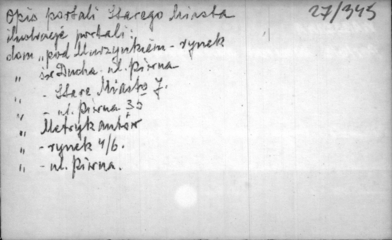 Opis portali Starego Miasta 27/345
ilustracje portali:
dom "pod Murzynkiem - rynek
" św Ducha ul. Piwna
" - Stare Miasto 7.
" - ul. Piwna 35
" Metrykantów
" - rynek 4/6.
" - ul. Piwna.